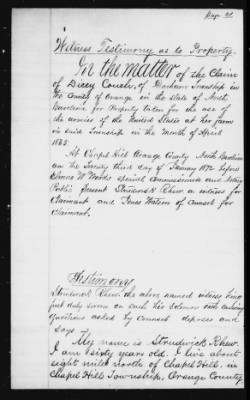 Page 21
Witness Testimony as to Property.
In the matter of the Claim
of Dicey Couch, of Durham Township in
the County of Orange in the state of North
Carolina for Property taken for the use of
the armies of the United States at her farm
in said Township in the Month of April
1865.
At Chapel Hill Orange County North Carolina
on the twenty third day of January 1872 before
James W. Woods special Commissioner and Notary
Public present Strudwick Rhew a witness for
Claimant and Jones Watson of Counsel for
Claimant.
Testimony
Strudwick Rhew the above named witness being
first duly sworn on oath his Solemn oath
questions asked by Counsel deposes and
says
My name is Strudwick Rhew.
I am sixty years old. I live about
eight miles north of Chapel Hill. in
Chapel Hill Township, Orange County,